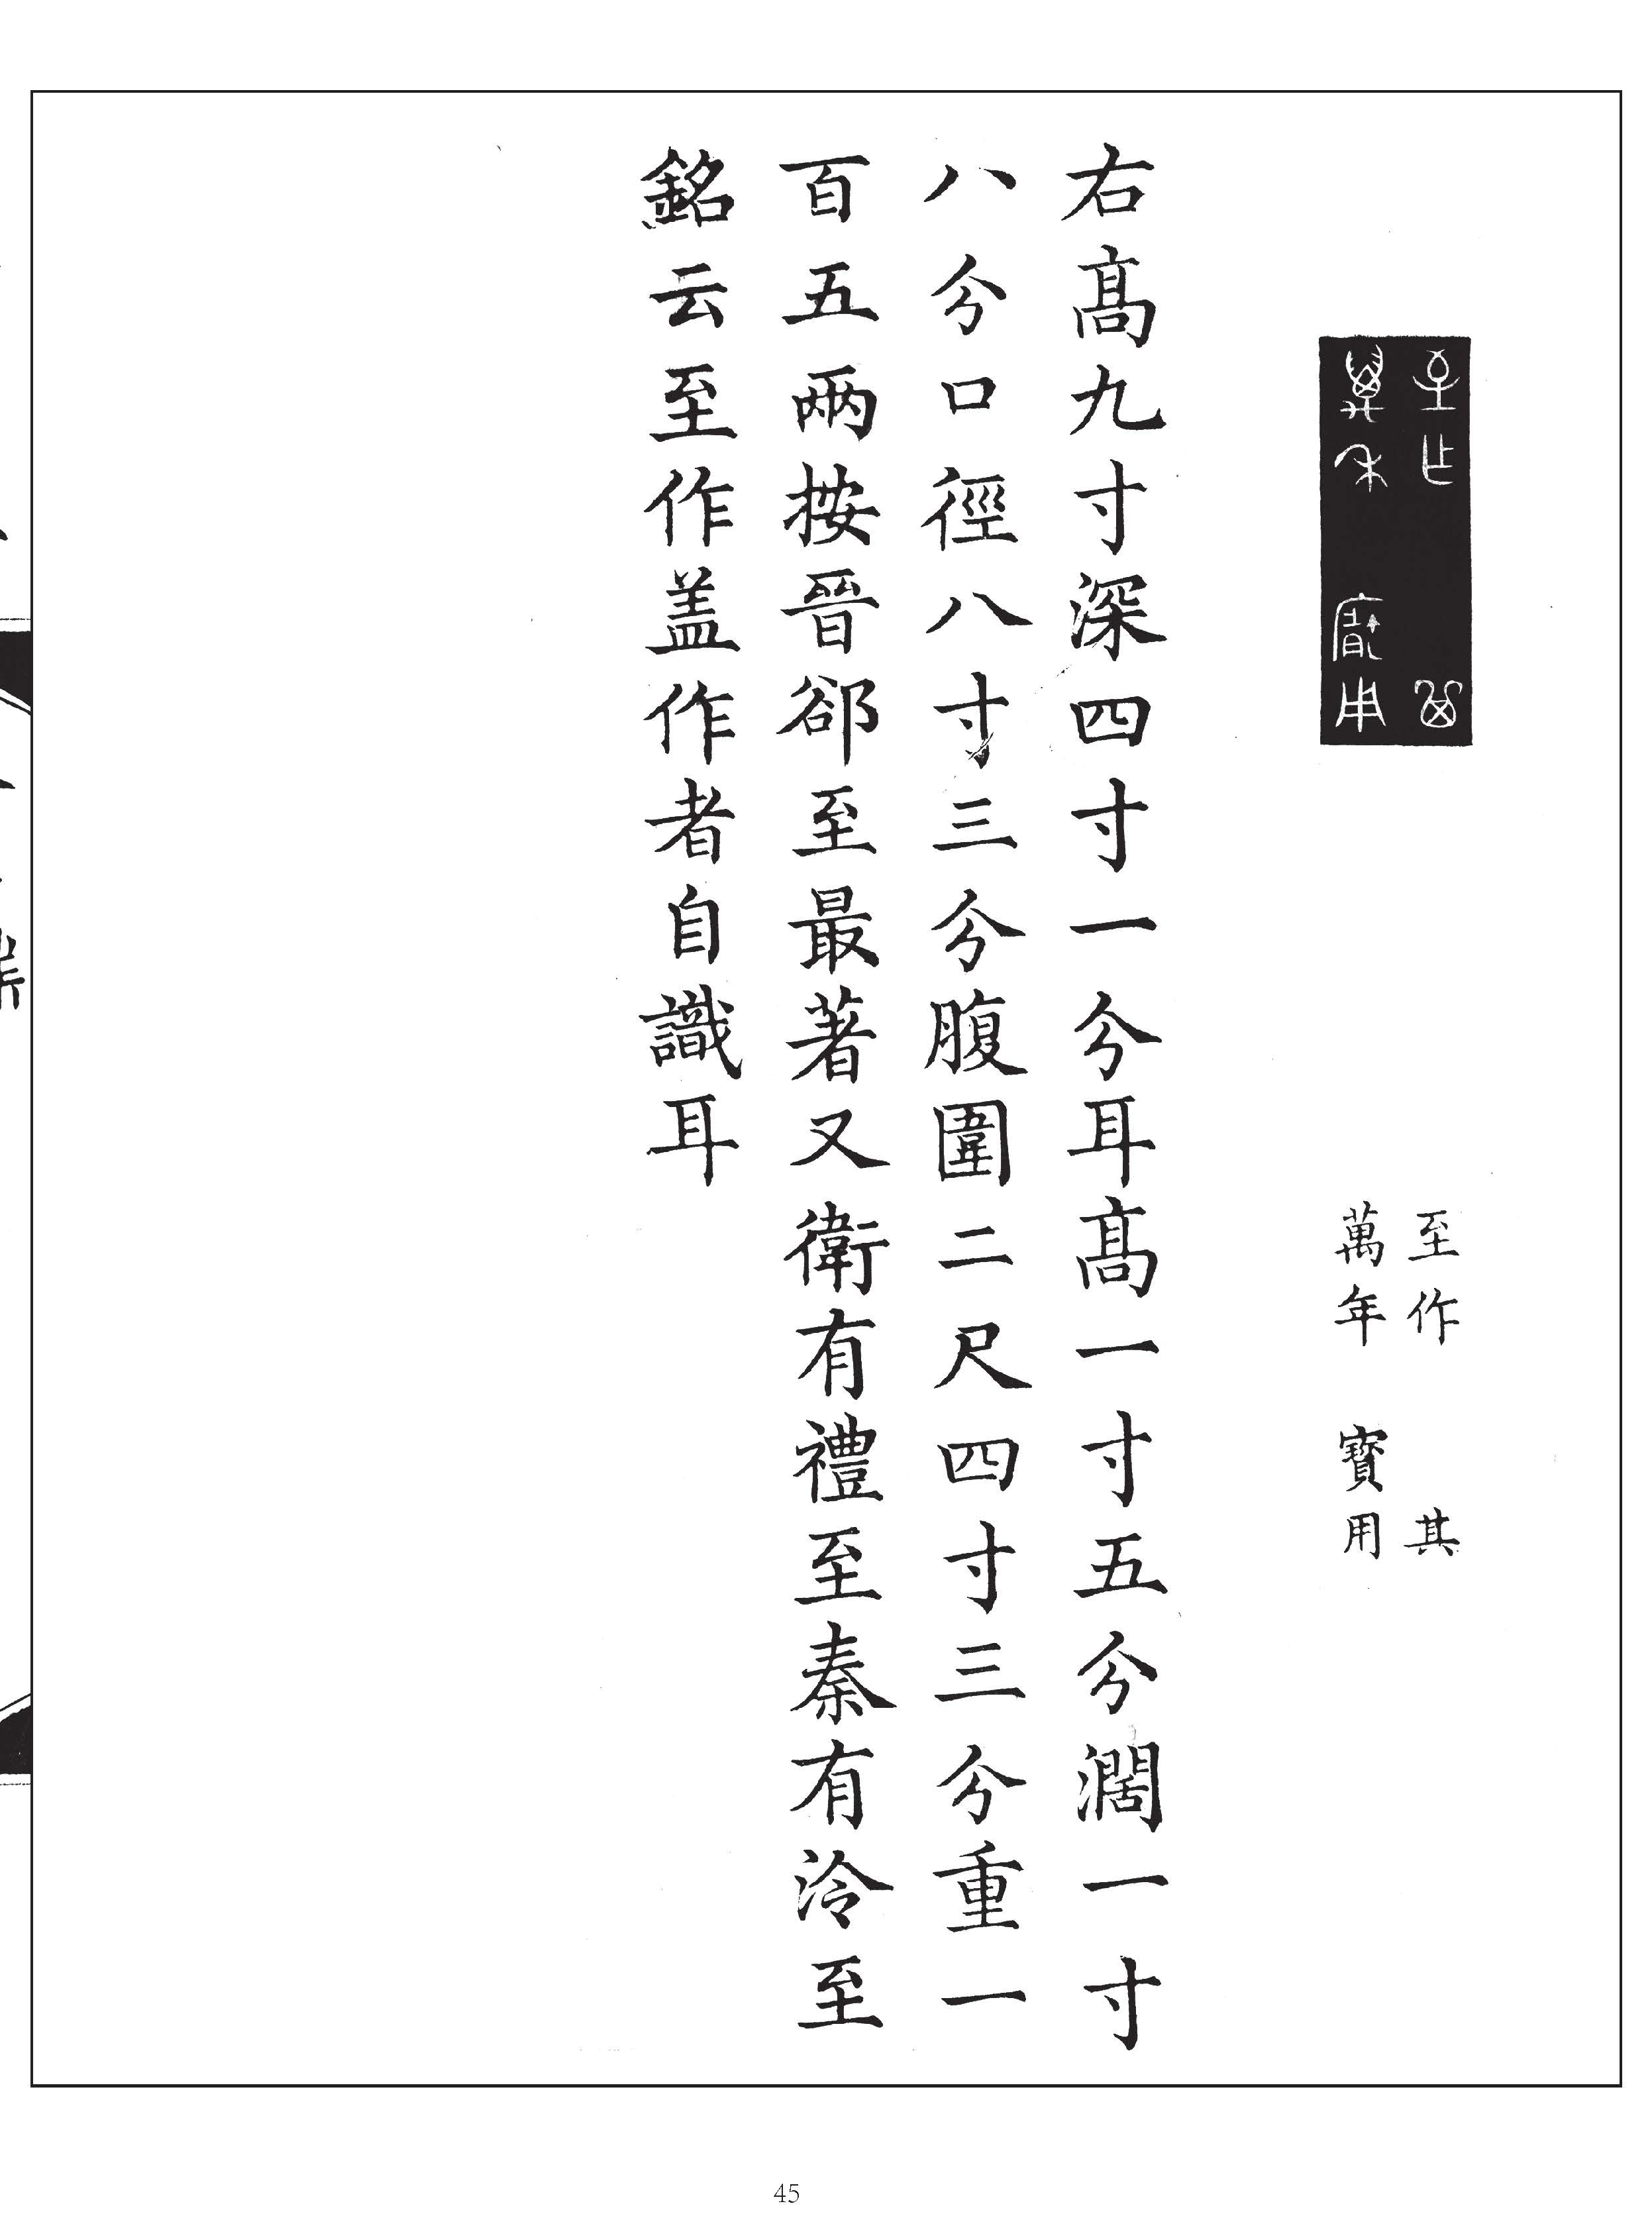 至作 其
萬年 寳用
右髙九寸深四寸一分耳髙一寸五分濶一寸
八分口徑八寸三分腹圍二尺四寸三分重一
百五兩按晉郤至最著又衛有禮至秦有泠至
銘云至作盖作者自識耳
45